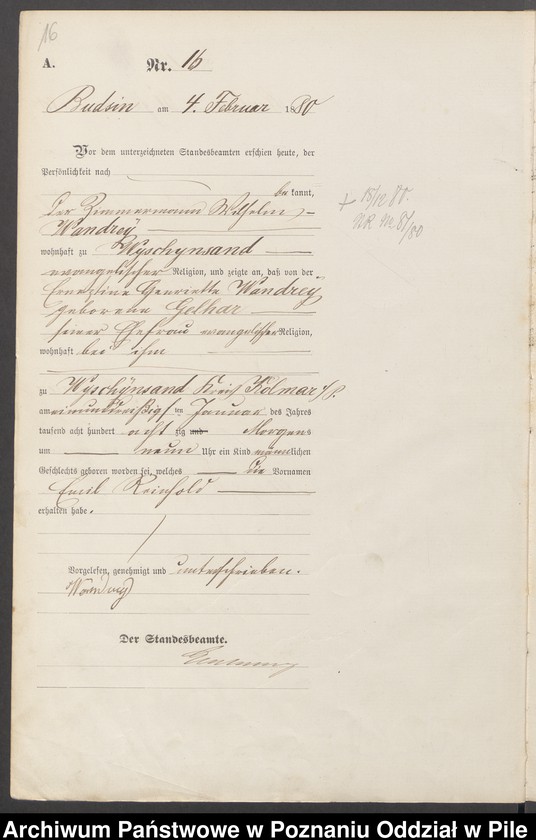 16
A.
Nr. 16
Budsin am 4. Februar 1880
Vor dem unterzeichneten Standesbeamten erschien heute, der
Persönlichkeit nach
bekannt,
der Zimmermann Wilhelm
Wandrey
wohnhaft zu Wyschynsand
evangelischer Religion, und zeigte an, daß von der
Henriette Wandrey,
geborene Gelhar
seiner Ehefrau evangelischer Religion,
wohnhaft bei ihm
zu Wyschynsand Kreis Kolmar i/P.
am einunddreißigsten Januar des Jahres
tausend acht hundert achtzig und Morgens
um neun Uhr ein Kind männlichen
Geschlechts geboren worden sei, welches die Vornamen
Emil Reinhold
erhalten habe.
Vorgelesen, genehmigt und unterschrieben.
Wandrey
Der Standesbeamte.
+ 18/12 80.
Archiwum Państwowe w Poznaniu Oddział w Pile